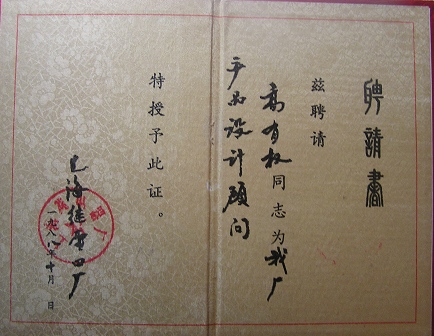 聘請書
兹聘请
高有权同志为我厂
产品设计顾问
特授予此证。
上海继电四厂
一九八八年十月 日